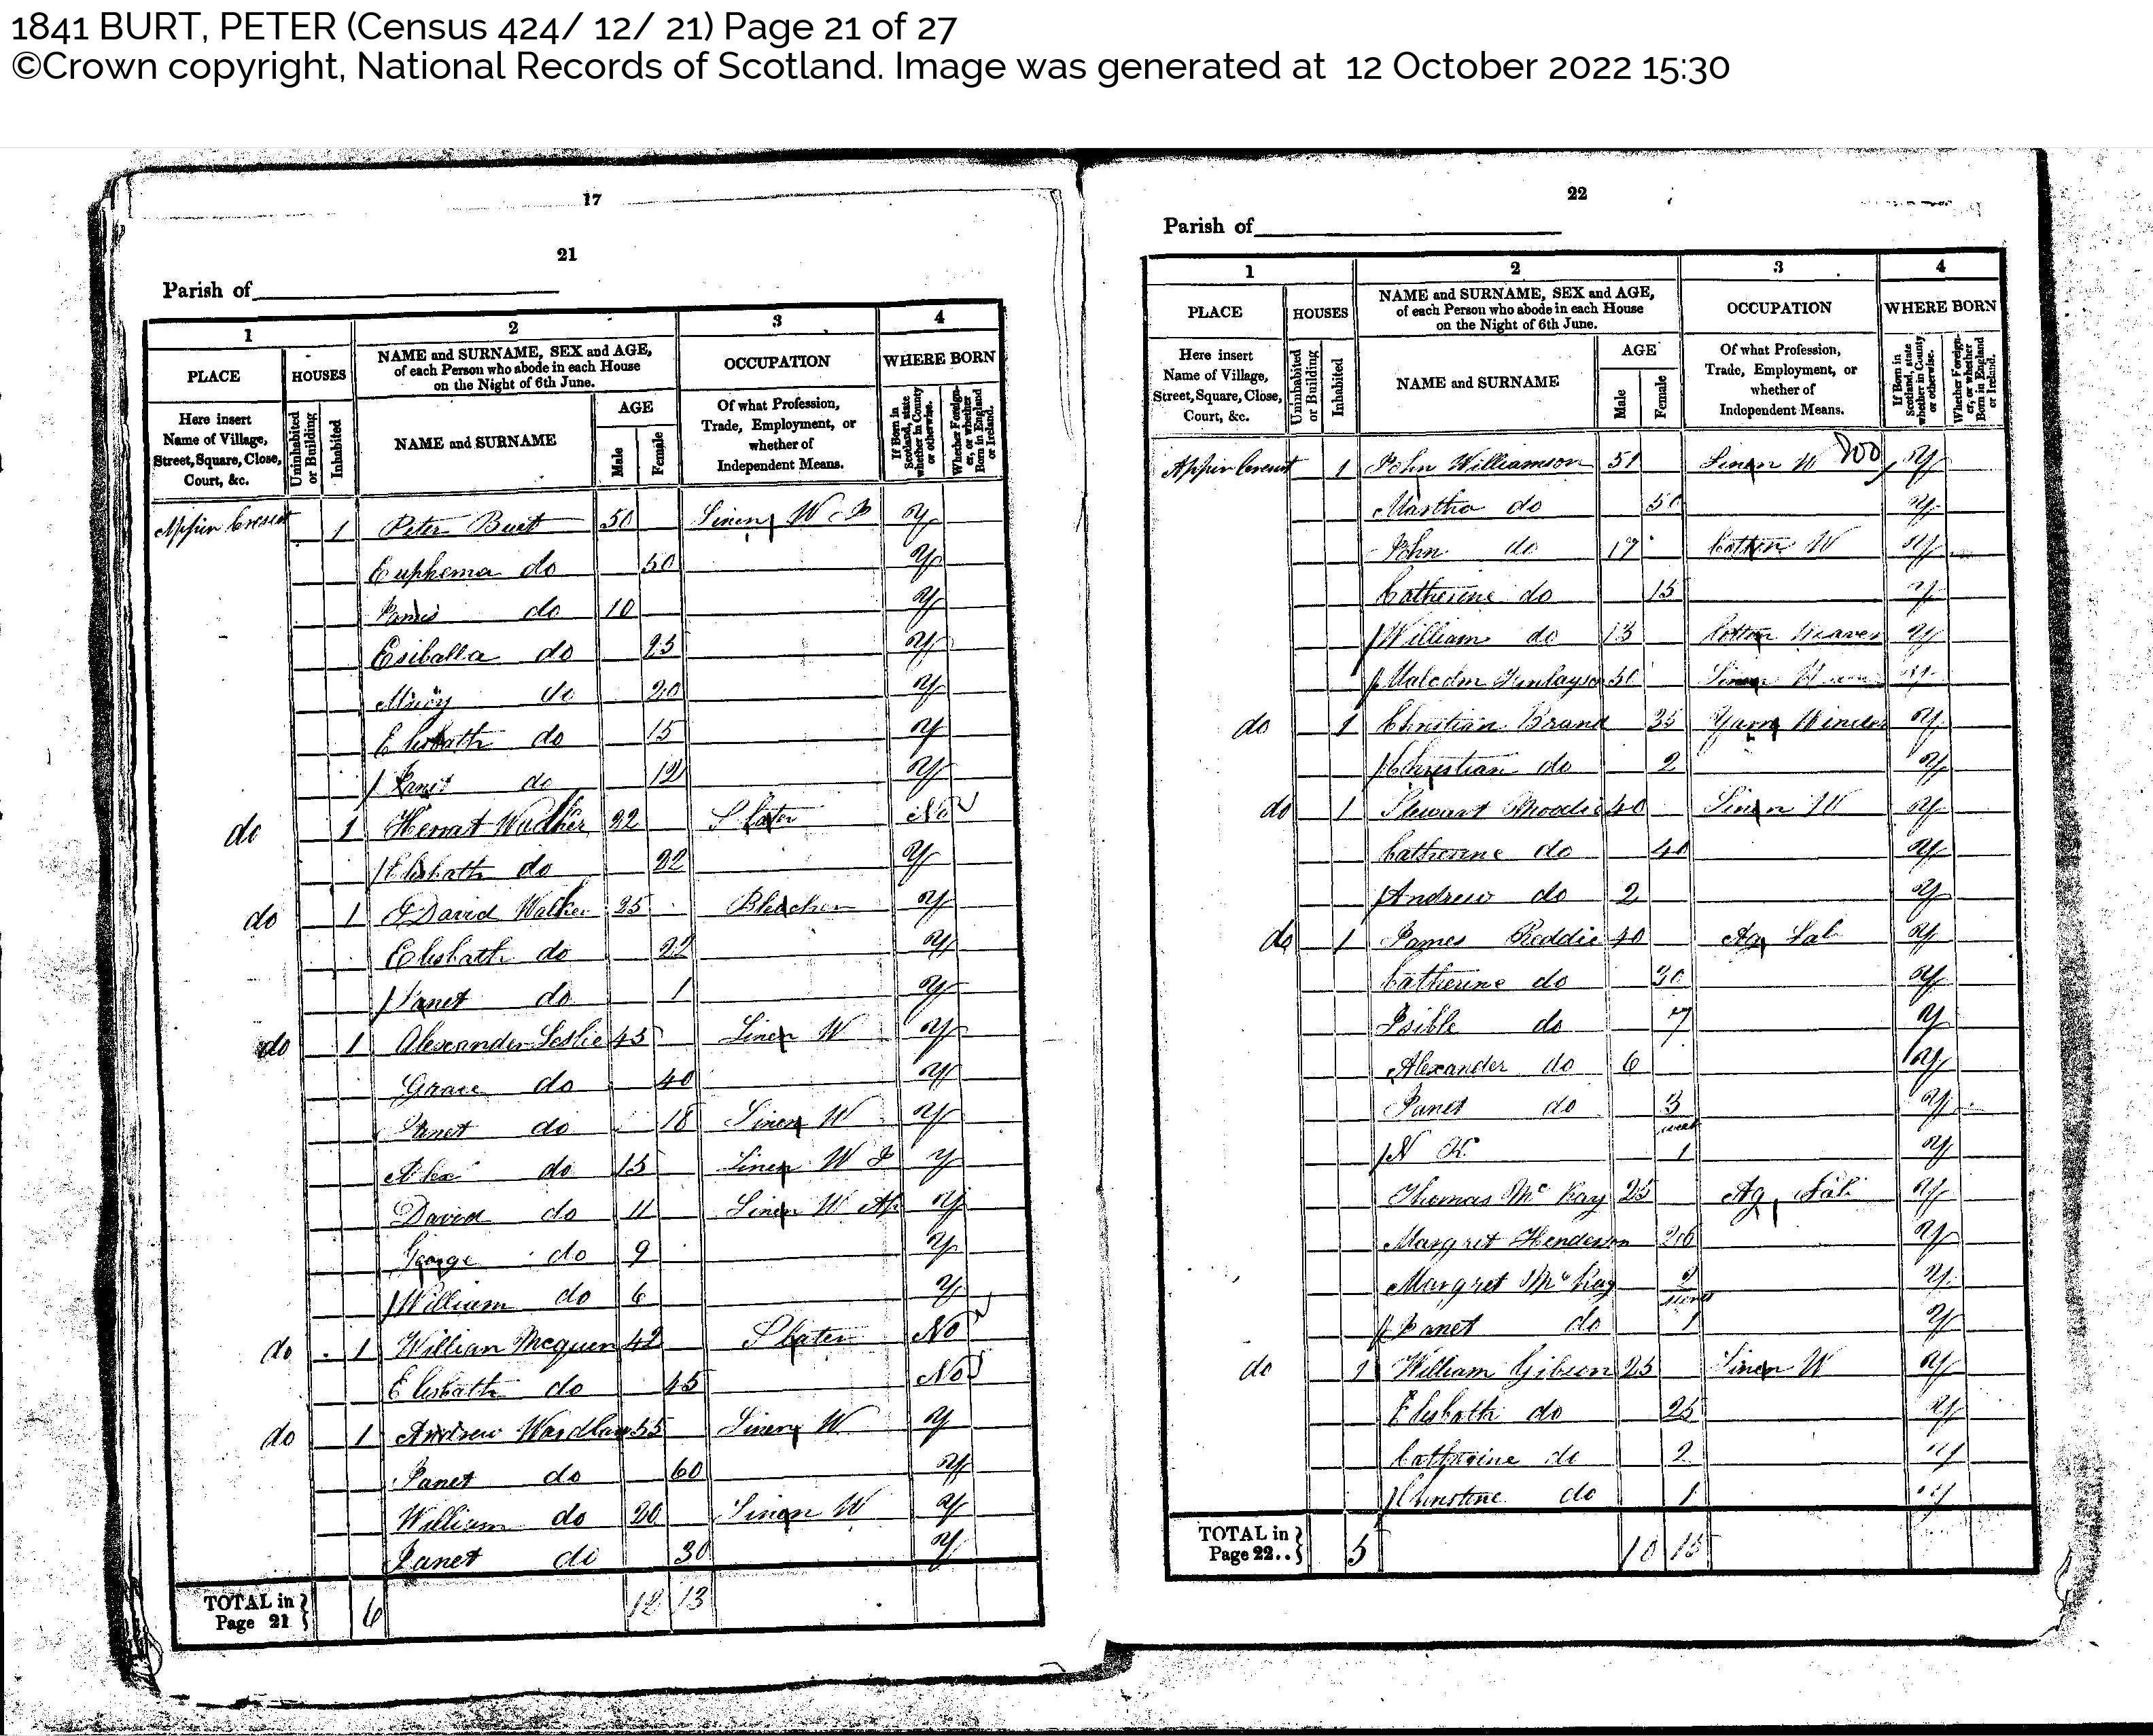 1841 BURT, PETER (Census 424/ 12/ 21) Page 21 of 27
©Crown copyright, National Records of Scotland. Image was generated at 12 October 2022 15:30
17
21
Parish of
1 2 3 4
PLACE HOUSES NAME and SURNAME, SEX and AGE, of each Person who abode in each House on the Night of 6th June. OCCUPATION WHERE BORN
Here insert Name of Village, Street, Square, Close, Court, &c. Uninhabited or Building Inhabited NAME and SURNAME AGE Male Female Of what Profession, Trade, Employment, or whether of Independent Means. If Born in Scotland, state whether in County or otherwise. Whether Foreigner, or whether Born in England or Ireland.
Appin Cresent 1 Peter Burt 50 Linen W J Y
Euphema do 50 Y
James do 10 Y
Esiballa do 25 Y
do 20 Y
Elisbath do 15 Y
do 12 Y
do 1 Walker 22 Slater No
Elisbath do 22 Y
do 1 David Walker 25 Bleacher Y
Elisbath do 22 Y
Janet do 1 Y
do 1 Alexander Leslie 45 Linen W Y
Grace do 40 Y
Janet do 18 Linen W Y
Alex do 15 Linen W J Y
David do 11 Linen W Ap Y
George do 9 Y
William do 6 Y
do 1 William Mcquen 42 Slater No
Elisbath do 45 No
do 1 Andrew Wardlaw 55 Linen W Y
Janet do 60 Y
William do 20 Linen W Y
Janet do 30 Y
TOTAL in Page 21 6 12 13
22
Parish of
1 2 3 4
PLACE HOUSES NAME and SURNAME, SEX and AGE, of each Person who abode in each House on the Night of 6th June. OCCUPATION WHERE BORN
Here insert Name of Village, Street, Square, Close, Court, &c. Uninhabited or Building Inhabited NAME and SURNAME AGE Male Female Of what Profession, Trade, Employment, or whether of Independent Means. If Born in Scotland, state whether in County or otherwise. Whether Foreigner, or whether Born in England or Ireland.
Appin Cresent 1 John Williamson 51 Linen W Y
Martha do 50 Y
John do 17 Cotton W Y
Catherine do 15 Y
William do 13 Cotton Weaver Y
Malcolm Finlayson 50 Linen Y
do 1 Christian Brand 35 Yarn Winder Y
Christian do 2 Y
do 1 Stewart Moodie 40 Linen W Y
Catherine do 40 Y
Andrew do 2 Y
do 1 James Reddie 40 Ag Lab Y
Catherine do 30 Y
Isible do 7 Y
Alexander do 6 Y
Janet do 3 Y
N K week 1 Y
Thomas McKay 25 Ag Lab Y
Margret Henderson 26 Y
Margret McKay 2 Y
Janet do 1 Y
do 1 William Gibson 25 Linen W Y
Elisbath do 25 Y
Catherine do 2 Y
Christine do 1 Y
TOTAL in Page 22.. 5 10 15